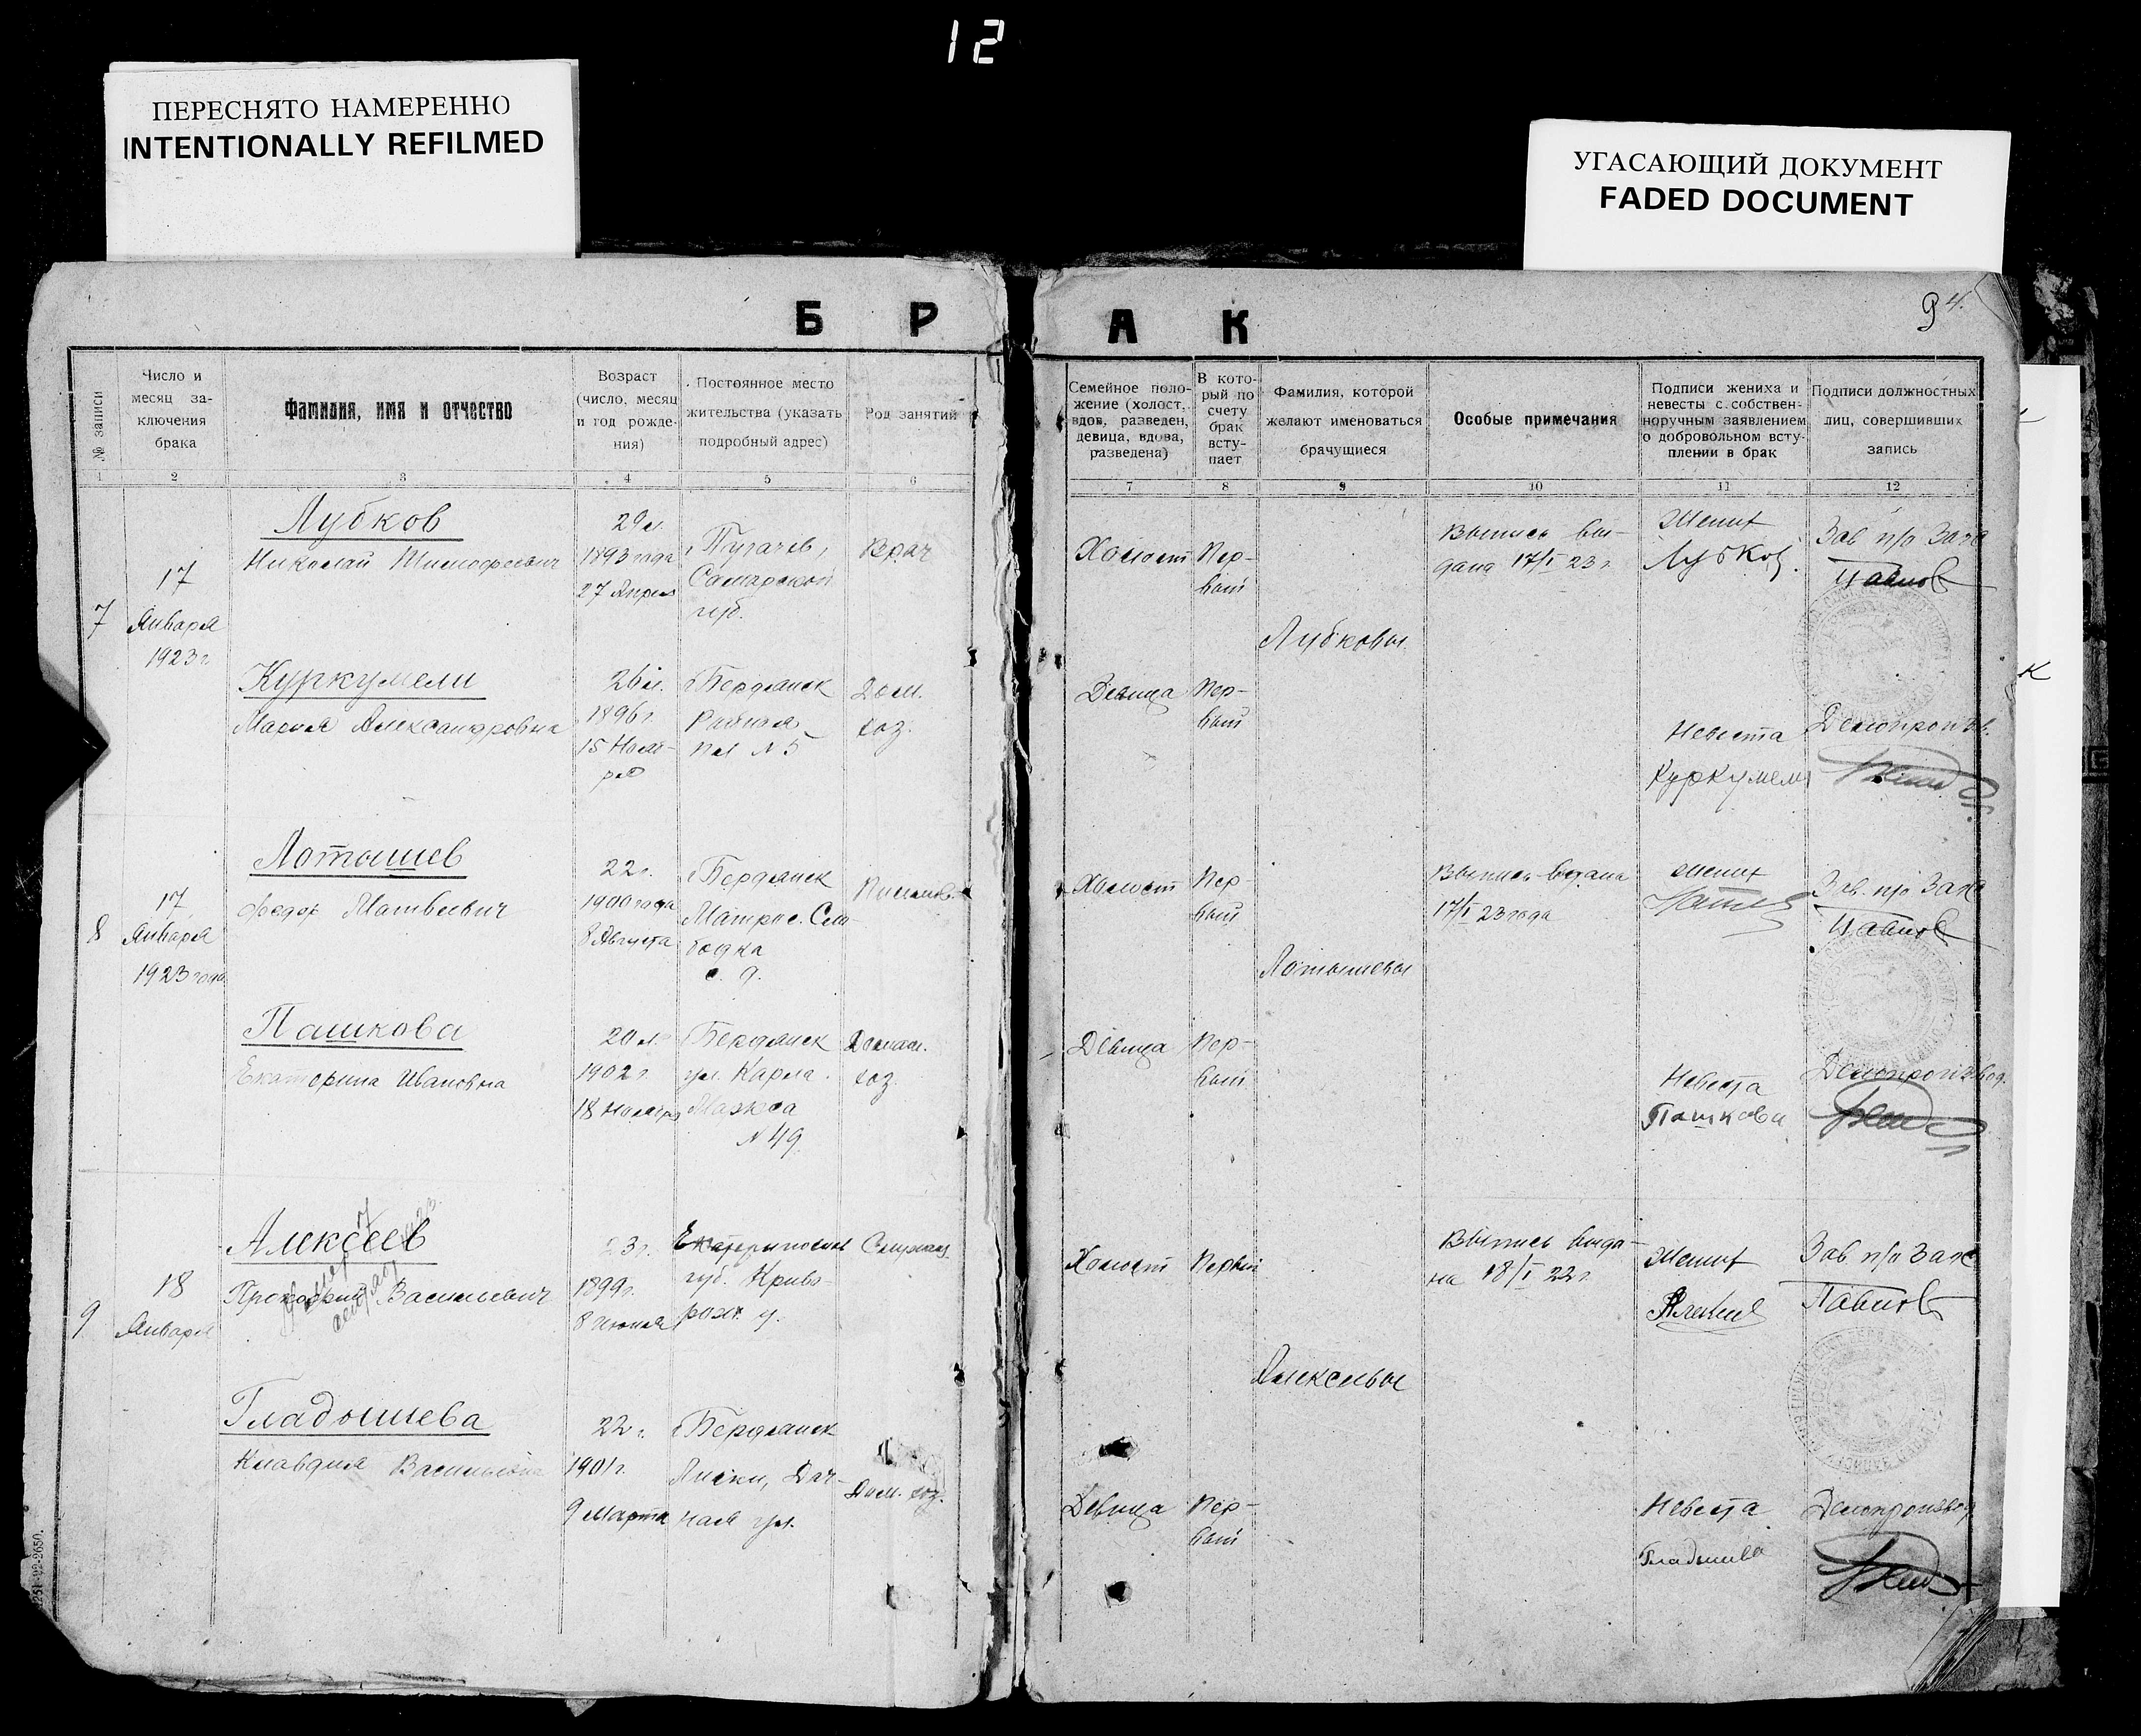 12
ПЕРЕСНЯТО НАМЕРЕННО
INTENTIONALLY REFILMED
УГАСАЮЩИЙ ДОКУМЕНТ
FADED DOCUMENT
Б Р А К
94.
№ записи
Число и
месяц за-
ключения
брака
Фамилия, имя и отчество
Возраст
(число, месяц
и год рожде-
ния)
Постоянное место
жительства (указать
подробный адрес)
Род занятий
Семейное поло-
жение (холост,
вдов, разведен,
девица, вдова,
разведена)
В кото-
рый по
счету
брак
всту-
пает
Фамилия, которой
желают именоваться
брачущиеся
Особые примечания
Подписи жениха и
невесты с собствен-
норучным заявлением
о добровольном всту-
плении в брак
Подписи должностных
лиц, совершивших
запись
1 2 3 4 5 6 7 8 9 10 11 12
7
17
Января
1923 г
Лубков
Николай Тимофеевич
29 л.
1893 года
27 Апреля
г. Пугачев,
Самарской
губ.
Врач
Холост
Пер-
вый
Лубковы
Выпись вы-
дана 17/I 23 г.
Жених
Лубков.
Зав п/о Загс
Куркумели
Мария Александровна
26 л.
1896 г.
15 Нояб-
ря
г Бердянск
пл N 5
Дом.
хоз.
Девица
Пер-
вый
Невеста
Куркумели
Делопроизв.
8
17
Января
1923 года
Лотышев
Федор Матвеевич
22 г.
1900 года
8 Августа
г Бердянск
Матрос. Сло-
бодка
с. д.
Холост
Пер-
вый
Лотышевы
Выпись выдана
17/I 23 года
Жених
Зав. п/о Загс
Пашкова
Екатерина Ивановна
20 л.
1902 г.
18 Ноября
г Бердянск
ул. Карла
Маркса
N 49
Домаш.
хоз.
Девица
Пер-
вый
Невеста
Пашкова
Делопроизвод.
9
18
Января
Алексеев
Васильевич
23 г.
1899 г.
8 Июля
Екатеринослав
губ. Криво-
рож. у.
Служащ.
Холост
Первый
Алексеевы
Выпись выда-
на 18/I 22 г.
Жених
Зав п/о Загс
Гладышева
Клавдия Васильевна
22 г.
1901 г.
9 Марта
г Бердянск
Лиски, Дач-
ная ул.
Дом. хоз.
Девица
Пер-
вый
Невеста
Гладышева
Делопроизвод